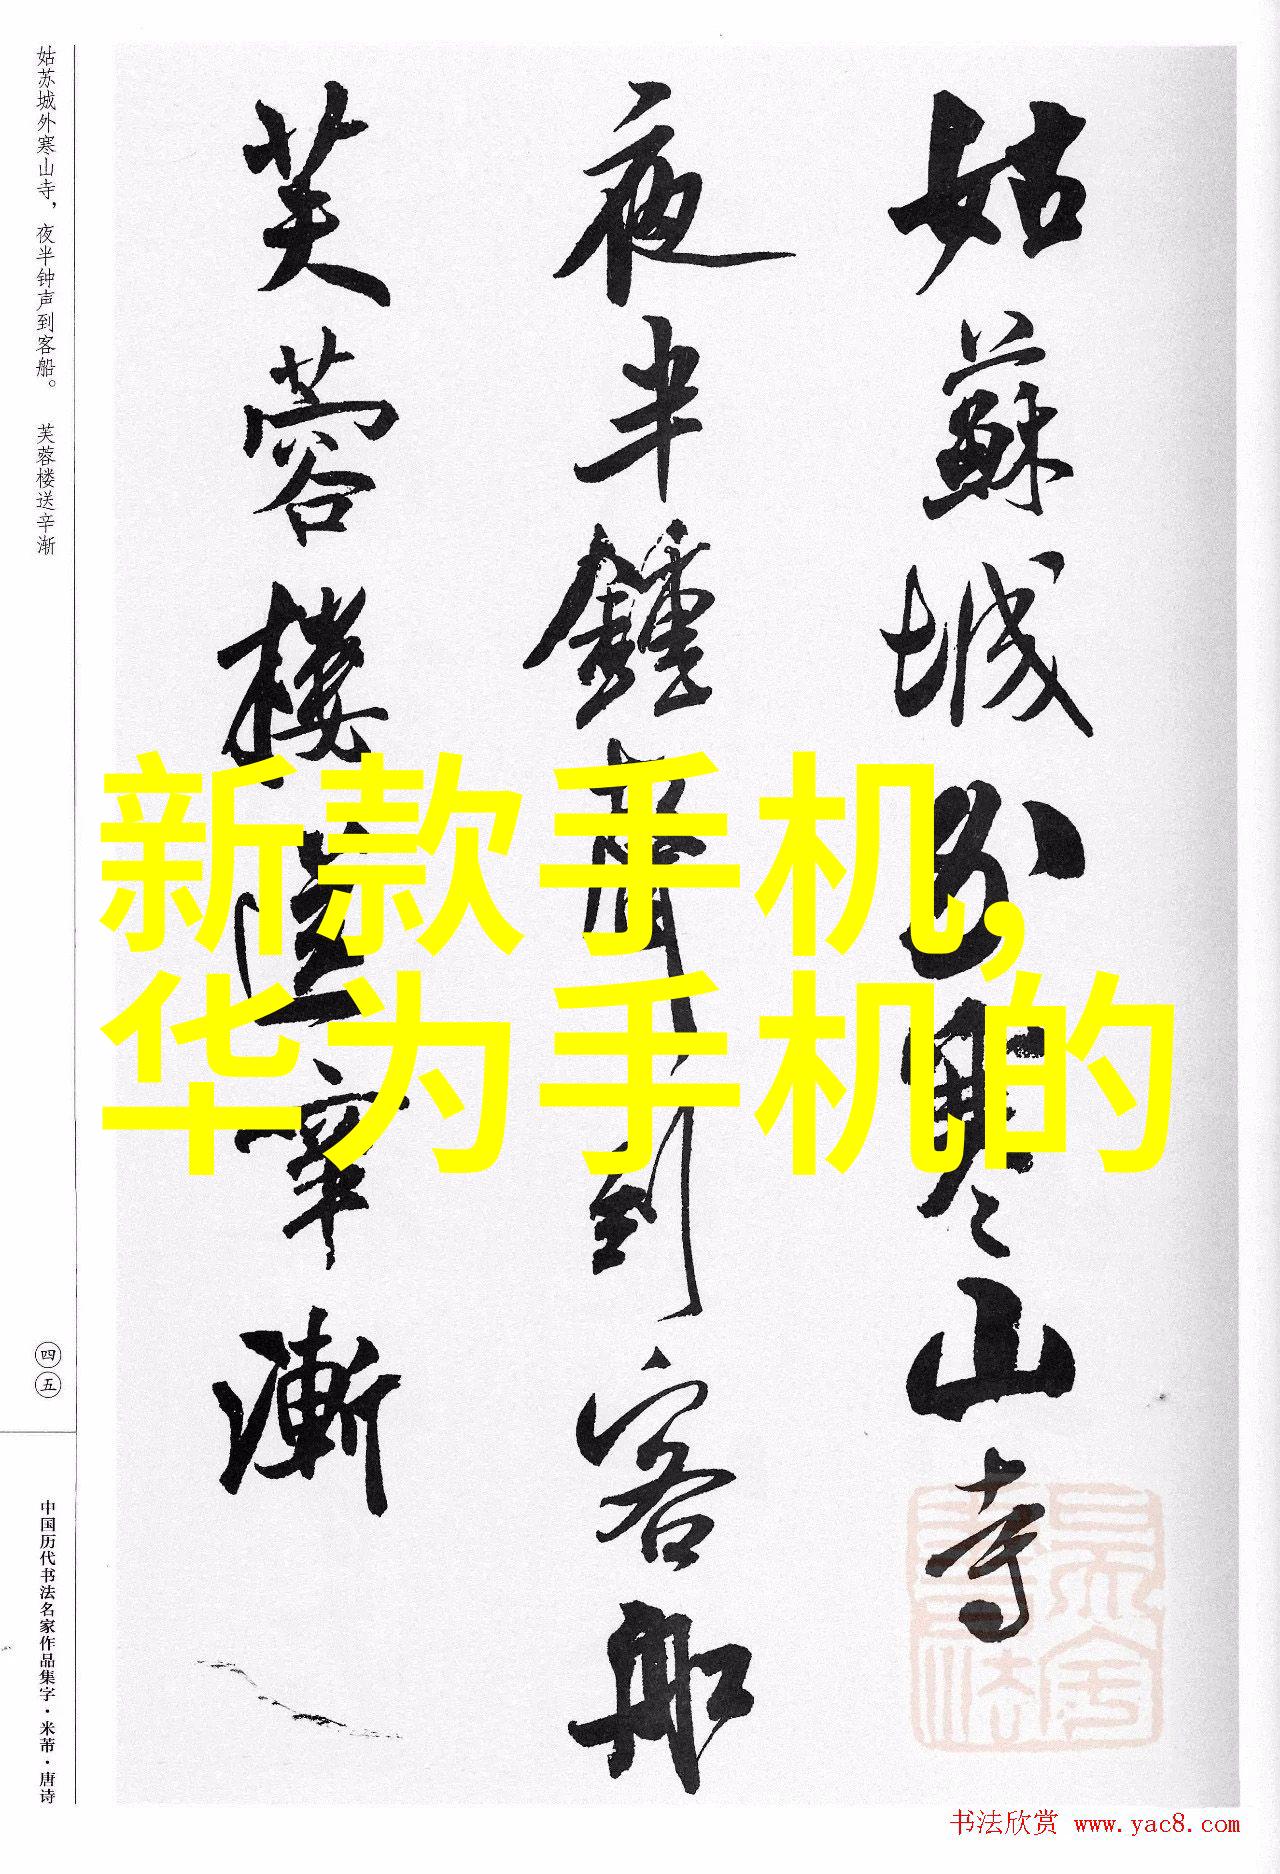 姑苏城外寒山寺，夜半钟声到客船。 芙蓉楼送辛渐
姑蘇城外寒山寺
夜半鍾聲到客船
芙蓉樓送辛漸
新款手机,
华为手机的
四五
中国历代书法名家作品集字·米芾·唐诗
书法欣赏 www.yac8.com